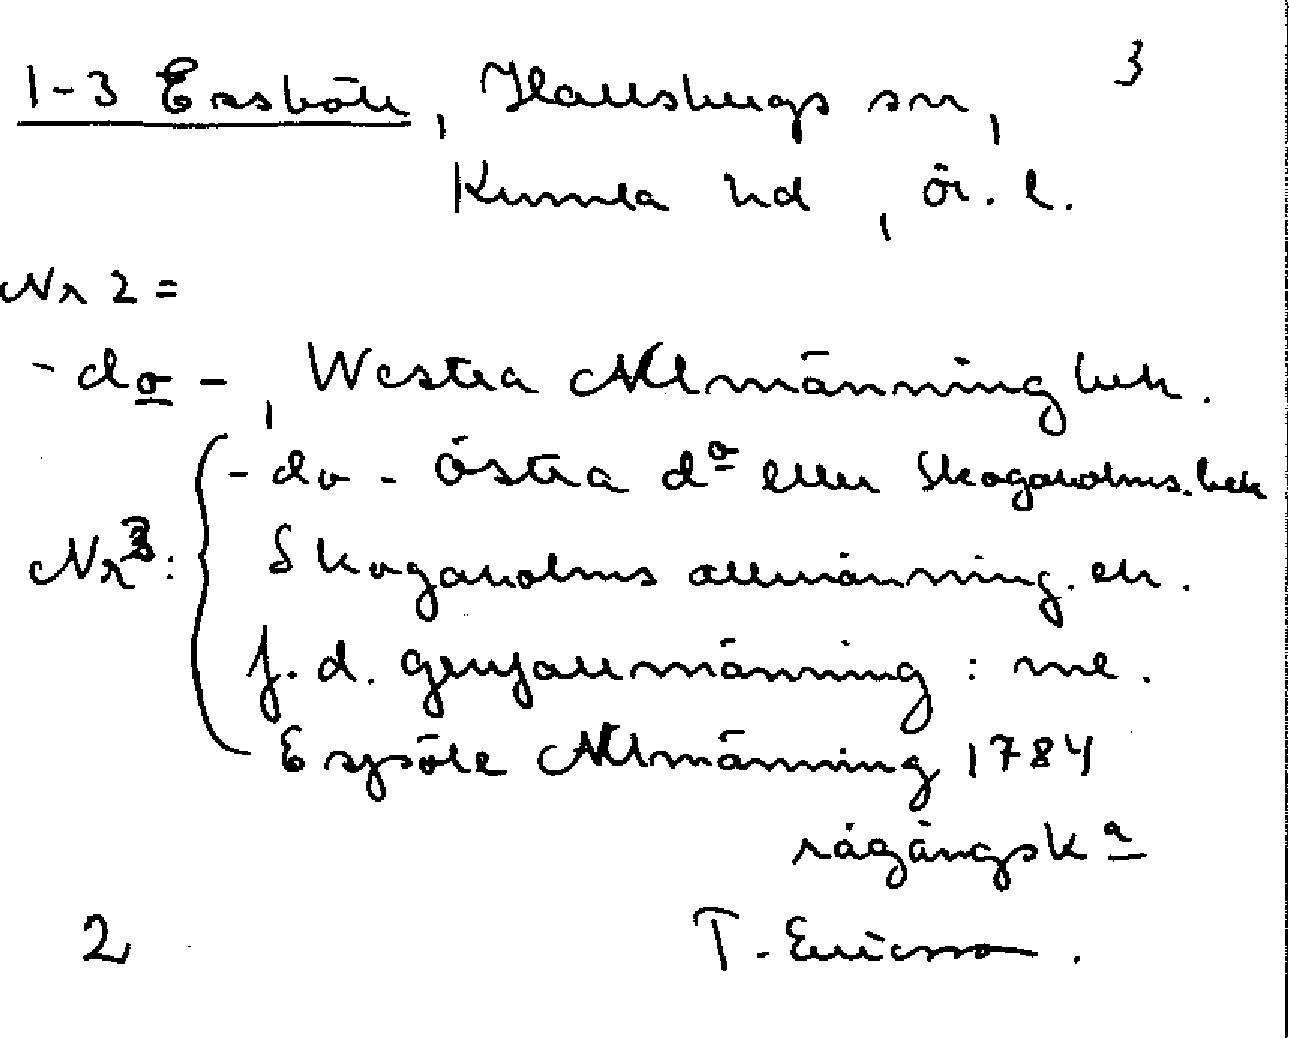 3
1-3 Exsböle, Hallsbergs sn,
Kumla hd, ör. l.
Nr 2 =
- do -, Westra Allmänning bek.
- do - Östra do eller Skogaholms. bek
Nr 3: Skogaholms allmänning. ek.
f. d. allmänning: me.
Exsjöle Allmänning 1784
rågångska
2 T. Ericsson.